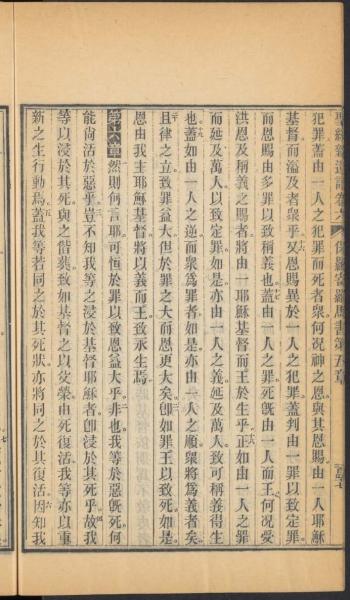 聖經新遺詔卷六 保羅寄羅馬書第五章
犯罪蓋由一人之犯罪而死者衆何況神之恩與其恩賜由一人耶穌
基督而溢及者衆乎又恩賜異於一人之犯罪蓋判由一罪以致定罪
而恩賜由多罪以致稱義也蓋由一人之罪死旣由一人而王何況愛
洪恩及稱義之賜者將由一耶穌基督而王於生乎正如由一人之罪
而延及萬人以致定罪如是亦由一人之義延及萬人致可稱義得生
也蓋如由一人之逆而衆爲罪者如是亦由一人之順衆將爲義者矣
且律之立致罪益大但於罪之大而恩更大矣卽如罪王以致死如是
恩由我主耶穌基督將以義而王致永生焉
第六章 然則何言耶可恒於罪以致恩益大乎非也我等於惡旣死何
能尙活於惡乎豈不知我等之浸於基督耶穌者卽浸於其死乎故我
等以浸於其死與之偕葬致如基督之以父榮由死復活我等亦以重
新之生行動焉蓋我等若同之於其死狀亦將同之於其復活因知我